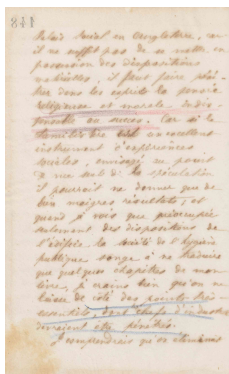 841
Palais Social en Angleterre, car
il ne suffit pas de se mettre en
possession des dispositions
matérielles, il faut faire péné-
trer dans les esprits la pensée
religieuse et morale indis-
pensable au succès. Car si le
familistère est un excellent
instrument d'expériences
sociales, envisagé au point
de vue seul de la spéculation
il pourrait ne donner que de
bien maigres résultats, et
quand je vois que préoccupée
seulement des dispositions de
l'édifice la société de l'hygiène
publique songe à ne traduire
que quelques chapitres de mon
livre, je crains bien qu'on ne
laisse de côté des points très
essentiels, dont chefs d'industrie
devraient être pénétrés.
Je comprendrais qu'on